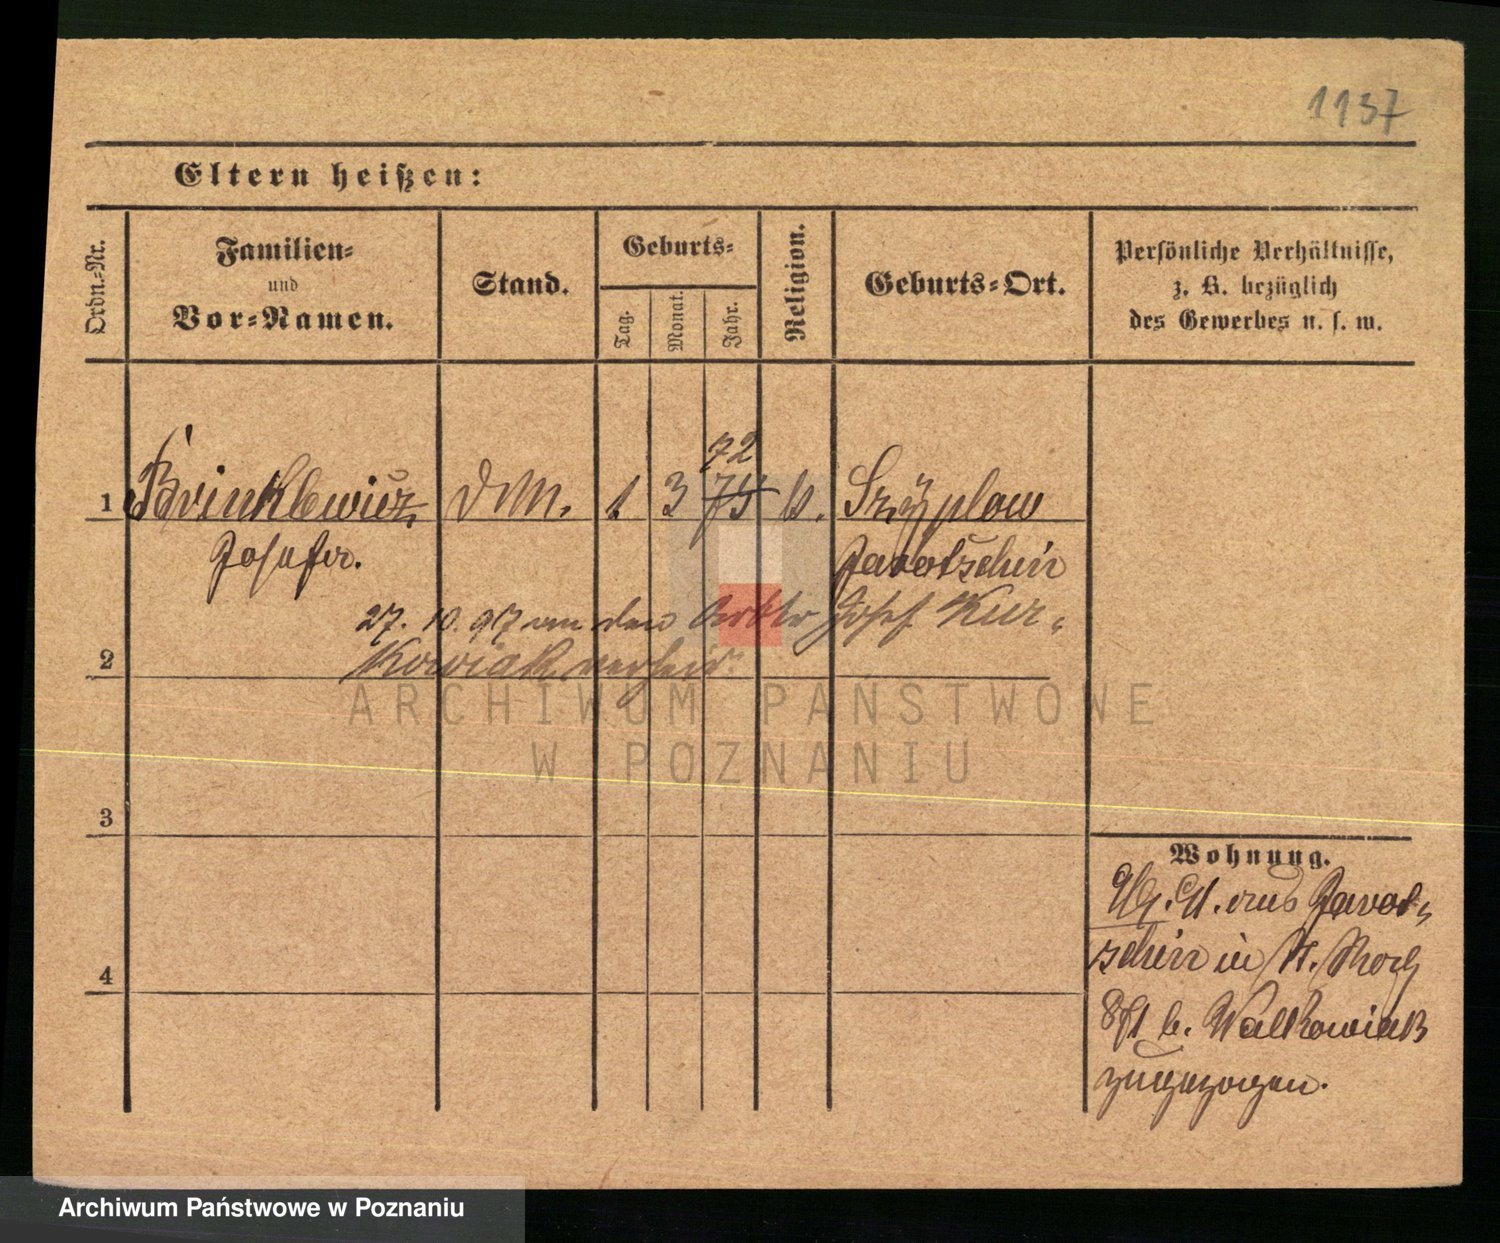 1137
Eltern heißen:
Ordn.-Nr.
Familien-
und
Vor-Namen.
Stand.
Geburts-
Tag.
Monat.
Jahr.
Religion.
Geburts-Ort.
Persönliche Verhältnisse,
z. B. bezüglich
des Gewerbes u. s. w.
72
1 DM. 1 3 75 k.
Jarotschin
27. 10. 97 an den Josef Kur-
kowiak verheir.
2
3
4
Wohnung.
aus Jarot-
schin in
b. Walkowiak
zugezogen.
ARCHIWUM PAŃSTWOWE
W POZNANIU
Archiwum Państwowe w Poznaniu